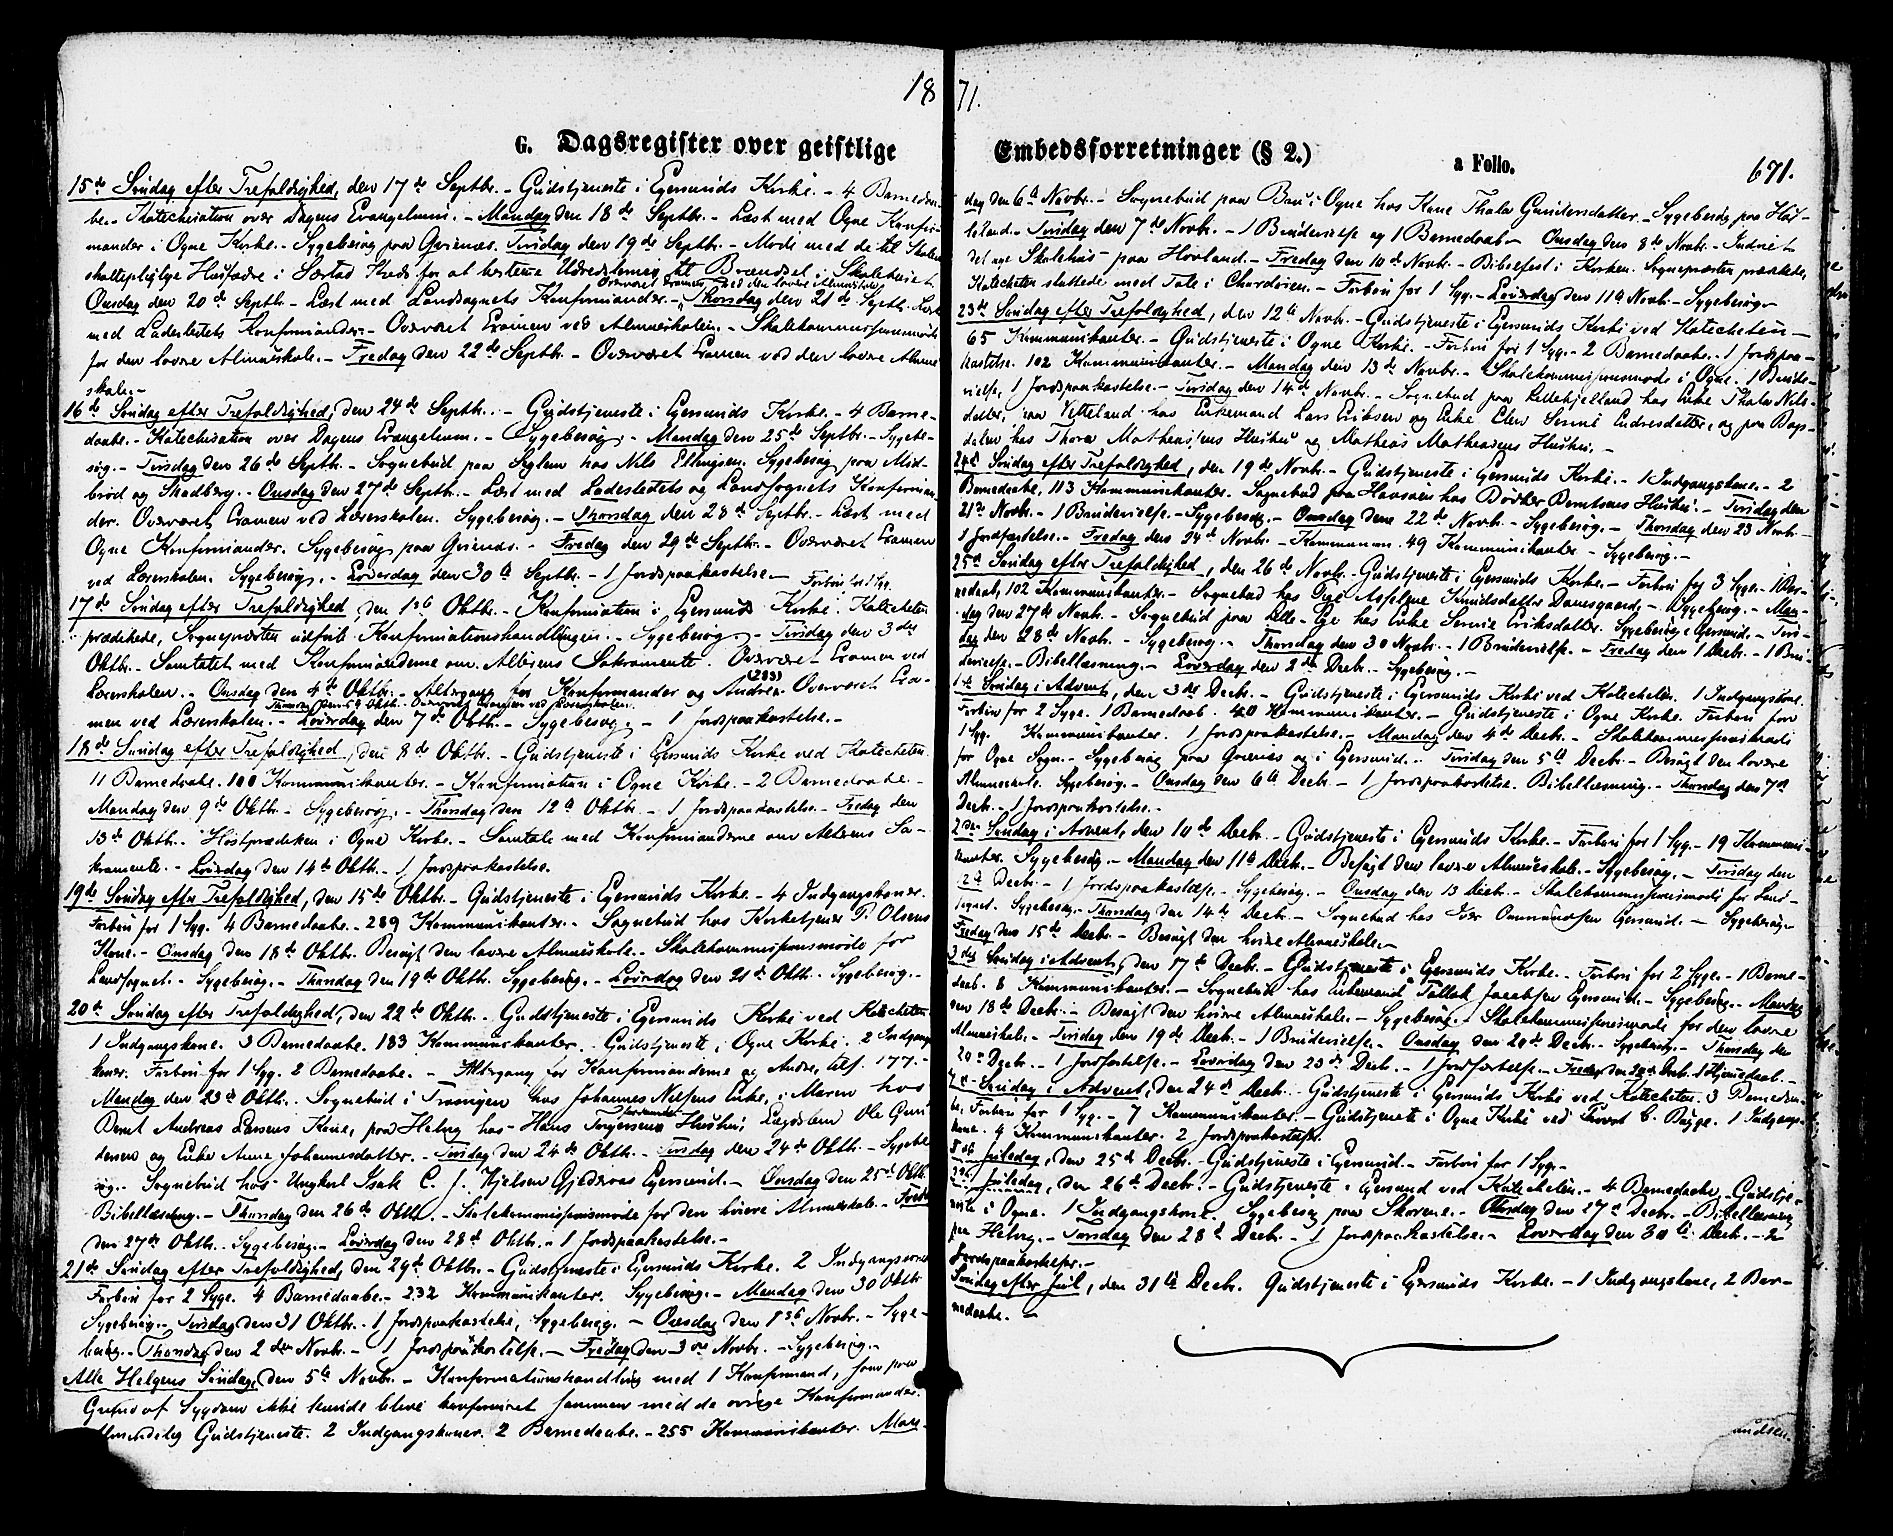 18
G. Dagsregister over geistlige
15de Søndag efter Trefoldighed, den 17de Septbr. - Gudstjeneste i Egersunds Kirke. - 4 Barnedaa-
be. - Katechisation over Dagens Evangelium. - Mandag den 18de Septbr. - Læst med Ogne Konfir-
mander i Ogne Kirke. - Sygebesøg paa Tirsdag den 19de Septbr. - Møde med de til Skolen
skattepligtige Husfædre i Kreds for at bestemme Udredelsen til Brændsel i Skolehuset.
Overværet Examen ved den lavere Almueskole
Onsdag den 20de Septbr. - Læst med Landsognets Konfirmander. - Thorsdag den 21de Septbr. Læst
med Ladestedets Konfirmander. - Overværet Examen ved Almueskolen. - Skolekommissionsmøde
for den lavere Almueskole. - Fredag den 22de Septbr. - Overværet Examen ved den lavere Almue
skole. -
16de Søndag efter Trefoldighed, den 24de Septbr. - Gudstjeneste i Egersunds Kirke. - 4 Barne-
daabe. - Katechisation over Dagens Evangelium. - Sygebesøg. - Mandag den 25de Septbr. - Sygebe-
søg. - Tirsdag den 26de Septbr. - Sognebud paa hos Nils Ellingsen. Sygebesøg paa Mid-
brød og Skadberg. - Onsdag den 27de Septbr. - Læst med Ladestedets og Landsognets Konfirman
der. Overværet Examen ved Lærerskolen. Sygebesøg. - Thorsdag den 28de Septbr. - Læst med
Ogne Konfirmander. Sygebesøg paa - Fredag den 29de Septbr. - Overværet Examen
ved Lærerskolen. Sygebesøg. - Løverdag den 30te Septbr. - 1 Jordspaakastelse. - Forbøn for 1 Syg.
17de Søndag efter Trefoldighed, den 1ste Oktbr. - Konfirmation i Egersunds Kirke. Katecheten
prædikede, Sognepræsten udførte Konfirmationshandlingen. - Sygebesøg. - Tirsdag den 3die
Oktbr. - Samtalet med Konfirmanderne om Alterens Sakramente. Overværet Examen ved
(283)
Lærerskolen. - Onsdag den 4de Oktbr. - Altergang for Konfirmander og Andre. Overværet Exa-
Thorsdag den 5te Oktbr. Overværet Examen ved Lærerskolen.
men ved Lærerskolen. - Løverdag den 7de Oktbr. - Sygebesøg. - 1 Jordspaakastelse. -
18de Søndag efter Trefoldighed, den 8de Oktbr. - Gudstjeneste i Egersunds Kirke ved Katecheten.
11 Barnedaabe. 100 Kommunikanter. - Konfirmation i Ogne Kirke. - 2 Barnedaabe. -
Mandag den 9de Oktbr. - Sygebesøg. - Thorsdag den 12te Oktbr. - 1 Jordspaakastelse. - Fredag den
13de Oktbr. - Høstprædiken i Ogne Kirke. - Samtale med Konfirmanderne om Alterens Sa-
kramente. - Løverdag den 14de Oktbr. - 1 Jordspaakastelse.
19de Søndag efter Trefoldighed, den 15de Oktbr. - Gudstjeneste i Egersunds Kirke. - 4 Indgangskoner.
Forbøn for 1 Syg. 4 Barnedaabe. - 289 Kommunikanter. - Sognebud hos Kirketjener T. Olsens
Kone. - Onsdag den 18de Oktbr. Besøgt den lavere Almueskole. - Skolekommissionsmøde for
Landsognet. - Sygebesøg. - Thorsdag den 19de Oktbr. Sygebesøg. - Løverdag den 21de Oktbr. Sygebesøg. -
20de Søndag efter Trefoldighed, den 22de Oktbr. - Gudstjeneste i Egersunds Kirke ved Katecheten.
1 Indgangskone. 3 Barnedaabe. 183 Kommunikanter. - Gudstjeneste i Ogne Kirke. 2 Indgangs
koner. Forbøn for 1 Syg. 2 Barnedaabe. - Altergang for Konfirmanderne og Andre, tils. 177. -
Mandag den 23de Oktbr. - Sognebud i hos Johannes Nielsens Enke, i hos
Bernt Andreas Larsens Kone, paa Helvig hos Hans Torgersens Hustru, Lægdslem Ole Gun
dersen og Enke Anne Johannesdatter. - Tirsdag den 24de Oktbr. - Tirsdag den 24de Oktbr. - Sygebe
søg. - Sognebud hos Ungkarl Isak C. J. Egersund. - Onsdag den 25de Oktbr.
Bibellæsning. - Thorsdag den 26de Oktbr. - Skolekommissionsmøde for den høiere Almueskole. - Fredag
den 27de Oktbr. Sygebesøg. - Løverdag den 28de Oktbr. - 1 Jordspaakastelse. -
21de Søndag efter Trefoldighed, den 29de Oktbr. - Gudstjeneste i Egersunds Kirke. 2 Indgangskoner
Forbøn for 2 Syge. 4 Barnedaabe. - 232 Kommunikanter. Sygebesøg. - Mandag den 30 Oktbr
Sygebesøg. - Tirsdag den 31 Oktbr. - 1 Jordspaakastelse, Sygebesøg. - Onsdag den 1ste Novbr. - Syge-
besøg. - Thorsdag den 2den Novbr. - 1 Jordspaakastelse. - Fredag den 3die Novbr. - Sygebesøg. -
Alle Helgens Søndag, den 5te Novbr. - Konfirmationshandling med 1 Konfirmand, som paa
Grund af Sygdom ikke kunde blive konfirmeret sammen med de øvrige Konfirmander.
Almindelig Gudstjeneste. 2 Indgangskoner. 2 Barnedaabe. - 255 Kommunikanter. Man-
71.
Embedsforretninger (§ 2.)
a Folio.
671.
dag den 6te Novbr. - Sognebud paa Bru i Ogne hos Kone Thala Gundersdatter. - Sygebesøg paa Hø-
leland. - Tirsdag den 7de Novbr. - 1 Brudevielse og 1 Barnedaab - Onsdag den 8de Novbr. - Indviet
det nye Skolehus paa Hovland. - Fredag den 10de Novbr. - Bibelfest i Kirken. Sognepræsten prædikede,
Katecheten sluttede med Tale i Chordøren. - Forbøn for 1 Syg. - Løverdag den 11te Novbr. - Sygebesøg
23de Søndag efter Trefoldighed, den 12te Novbr. - Gudstjeneste i Egersunds Kirke ved Katecheten -
65 Kommunikanter. - Gudstjeneste i Ogne Kirke. - Forbøn for 1 Syg. - 2 Barnedaabe. - 1 Jordspaa-
kastelse. 102 Kommunikanter. - Mandag den 13de Novbr. - Skolekommissionsmøde i Ogne. 1 Brude-
vielse, 1 Jordspaakastelse. - Tirsdag den 14de Novbr. - Sognebud paa hos Enke Thala Nils-
datter, paa Vetteland hos Enkemand Lars Eriksen og Enke Elen Serine Endresdatter, og paa
hos Thora Mathias'ens Hustru og Mathias Mathiasens Hustru. -
24de Søndag efter Trefoldighed, den 19de Novbr. - Gudstjeneste i Egersunds Kirke. - 1 Indgangskone. - 2
Barnedaabe, 113 Kommunikanter. Sognebud paa hos Bødker Berntsens Hustru. - Tirsdag den
21de Novbr. - 1 Brudevielse. - Sygebesøg. - Onsdag den 22de Novbr. - Sygebesøg. - Thorsdag den 23 Novbr. -
1 Jordfæstelse. - Fredag den 24de Novbr. - Kommunion. 49 Kommunikanter - Sygebesøg. -
25de Søndag efter Trefoldighed, den 26de Novbr. - Gudstjeneste i Egersunds Kirke. - Forbøn for 3 Syge. - 1 Bar-
nedaab, 102 Kommunikanter. - Sognebud hos Pige Asseline - Sygebesøg. - Man-
dag den 27de Novbr. - Sognebud paa hos Enke Serine Eriksdatter. Sygebesøg i Egersund. - Tirs-
dag den 28de Novbr. - Sygebesøg. - Thorsdag den 30 Novbr. - 1 Brudevielse. - Fredag den 1 Decbr. - 1 Bru-
devielse. - Bibellæsning. - Løverdag den 2den Decbr. - Sygebesøg. -
1ste Søndag i Advent, den 3die Decbr. - Gudstjeneste i Egersunds Kirke ved Katecheten. 1 Indgangskone.
Forbøn for 2 Syge. 1 Barnedaab. 40 Kommunikanter. - Gudstjeneste i Ogne Kirke. Forbøn for
1 Syg. Kommunikanter. 1 Jordspaakastelse. - Mandag den 4de Decbr. - Skolekommissionsmøde
for Ogne Sogn. - Sygebesøg paa og i Egersund. - Tirsdag den 5te Decbr. - Besøgt den lavere
Almueskole. Sygebesøg. - Onsdag den 6te Decbr. - 1 Jordspaakastelse. Bibellæsning. - Thorsdag den 7de
Decbr. - 1 Jordspaakastelse. -
2den Søndag i Advent, den 10de Decbr. - Gudstjeneste i Egersunds Kirke. - Forbøn for 1 Syg. - 19 Kommuni-
kanter. Sygebesøg. - Mandag den 11te Decbr. - Besøgt den lavere Almueskole. - Sygebesøg. - Tirsdag den
2te Decbr. - 1 Jordspaakastelse. - Sygebesøg. - Onsdag den 13 Decbr. - Skolekommissionsmøde for Land-
sognet. Sygebesøg. - Thorsdag den 14de Decbr. - Sognebud hos Iver Egersund. - Sygebesøg. -
Fredag den 15de Decbr. - Besøgt den høiere Almueskole. -
3die Søndag i Advent, den 17de Decbr. - Gudstjeneste i Egersunds Kirke. - Forbøn for 2 Syge. - 1 Barne-
daab. 8 Kommunikanter. - Sognebud hos Enkemand Tallak Jacobsen Egersund. - Sygebesøg. Mandag
den 18de Decbr. - Besøgt den høiere Almueskole. - Sygebesøg. - Skolekommissionsmøde for den lavere
Almueskole. - Tirsdag den 19de Decbr. - 1 Brudevielse. - Onsdag den 20de Decbr. - Sygebesøg. - Thorsdag den
Decbr. - 1 Jordfæstelse. - Løverdag den 23de Decbr. - 1 Jordfæstelse. - Fredag den Decbr. 1 Hjemmedaab. -
4de Søndag i Advent, den 24de Decbr. Gudstjeneste i Egersunds Kirke ved Katecheten. 3 Barnedaa-
be. Forbøn for 1 Syg. - 7 Kommunikanter. - Gudstjeneste i Ogne Kirke ved Provst C. Bugge. 1 Indgangs-
kone. 4 Kommunikanter. 2 Jordspaakastelser.
Juledag, den 25de Decbr. - Gudstjeneste i Egersund. - Forbøn for 1 Syg. -
Juledag, den 26de Decbr. - Gudstjeneste i Egersund ved Katecheten. - 4 Barnedaabe. - Gudstje-
neste i Ogne. 1 Indgangskone. Sygebesøg paa - Onsdag den 27de Decbr. - Bibellæsning
paa Helvig. - Torsdag den 28de Decbr. - 1 Jordspaakastelse. - Løverdag den 30te Decbr. - 2
Jordspaakastelser. -
Søndag efter Juul, den 31te Decbr. Gudstjeneste i Egersunds Kirke. - 1 Indgangskone, 2 Bar-
nedaabe. -